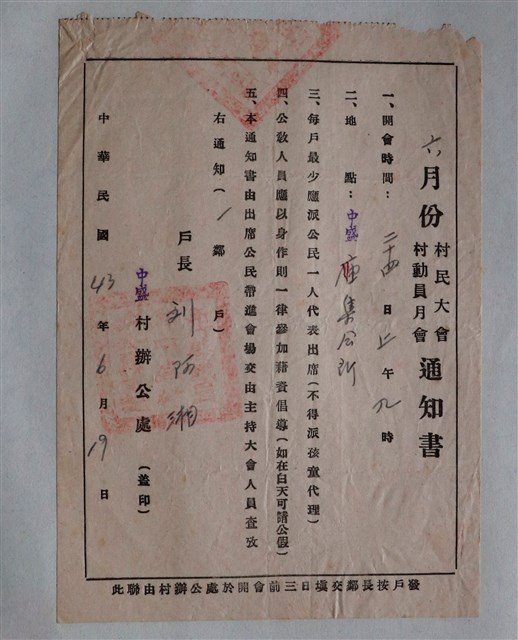 六月份 村民大會 村動員月會 通知書
一、開會時間：二十四日上午九時
二、地　點：中盛庙集会所
三、每戶最少應派公民一人代表出席（不得派孩童代理）
四、公教人員應以身作則一律參加藉資倡導（如在白天可請公假）
五、本通知書由出席公民帶進會場交由主持大會人員查攷
右通知（1鄰　戶）
戶長 刘阿湘
中盛村辦公處（蓋印）
中華民國43年6月19日
此聯由村辦公處於開會前三日填交鄰長按戶發